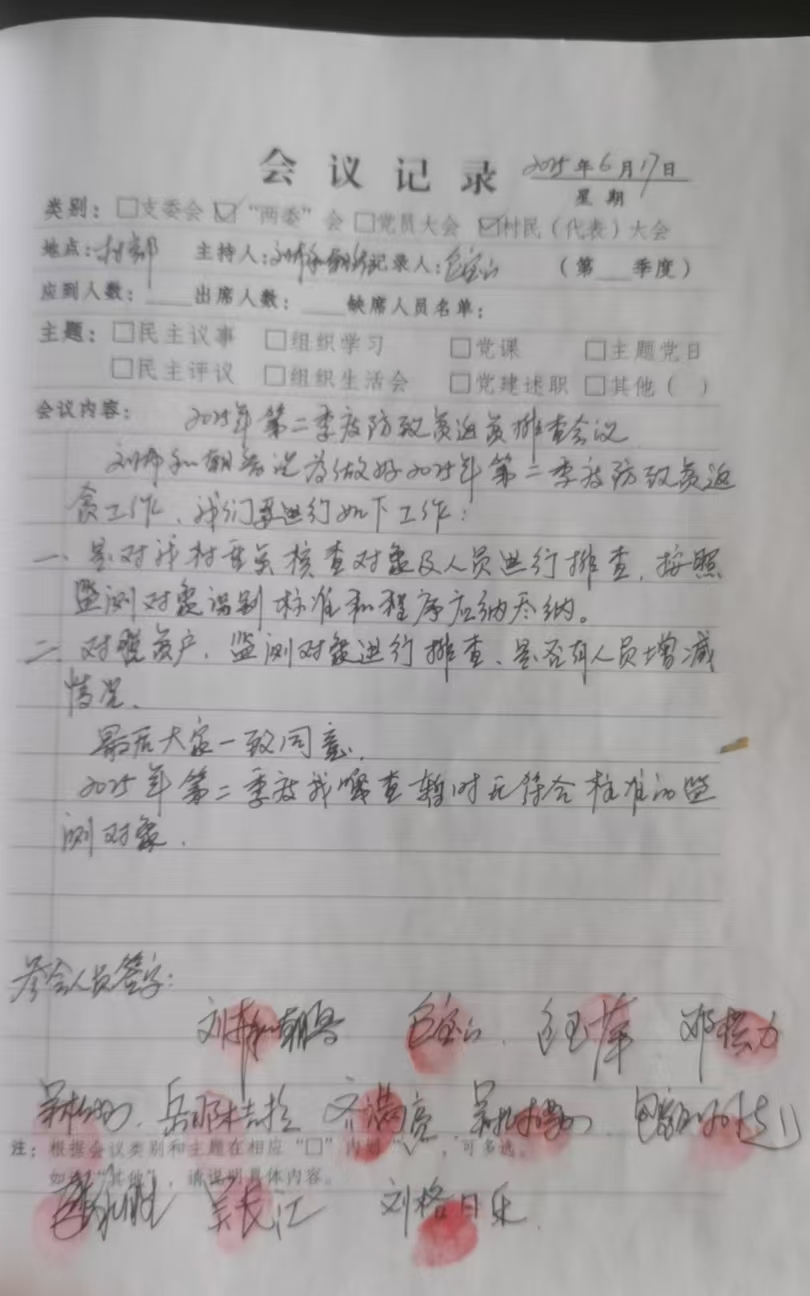 会议记录 2025年6月17日
星期
类别：□支委会 ☑“两委”会 □党员大会 ☑村民（代表）大会
地点：村部 主持人：刘 记录人：包宝山 （第 季度）
应到人数： 出席人数： 缺席人员名单：
主题：□民主议事 □组织学习 □党课 □主题党日
□民主评议 □组织生活会 □党建述职 □其他（ ）
会议内容： 2025年第二季度防致贫返贫排查会议
刘 朝鲁说为做好2025年第二季度防致贫返
贫工作，我们要进行如下工作：
一、是对我村重点核查对象及人员进行排查，按照
监测对象识别标准和程序应纳尽纳。
二、对脱贫户，监测对象进行排查、是否有人员增减
情况。
最后大家一致同意，
2025年第二季度我 查暂时无符合标准的监
测对象．
参会人员签字：
刘 朝鲁 包宝山． 邓 力
岳 吉 齐满亮
注：根据会议类别和主题在相应“□”内划“√”，可多选。
如 “其他”，请说明具体内容。
吴长江 刘格日乐